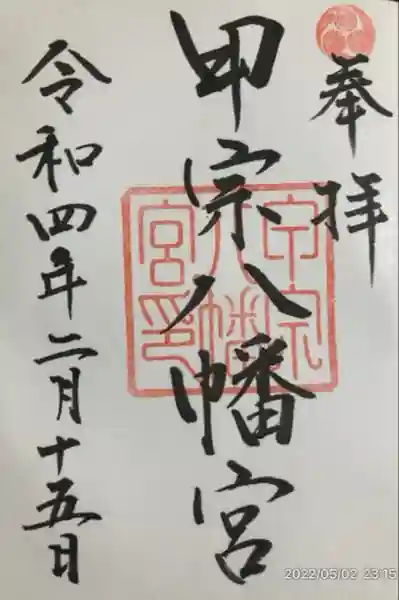 奉拝
甲宗八幡宮
甲宗
八幡
宮印
令和四年二月十五日
2022/05/02 23:15